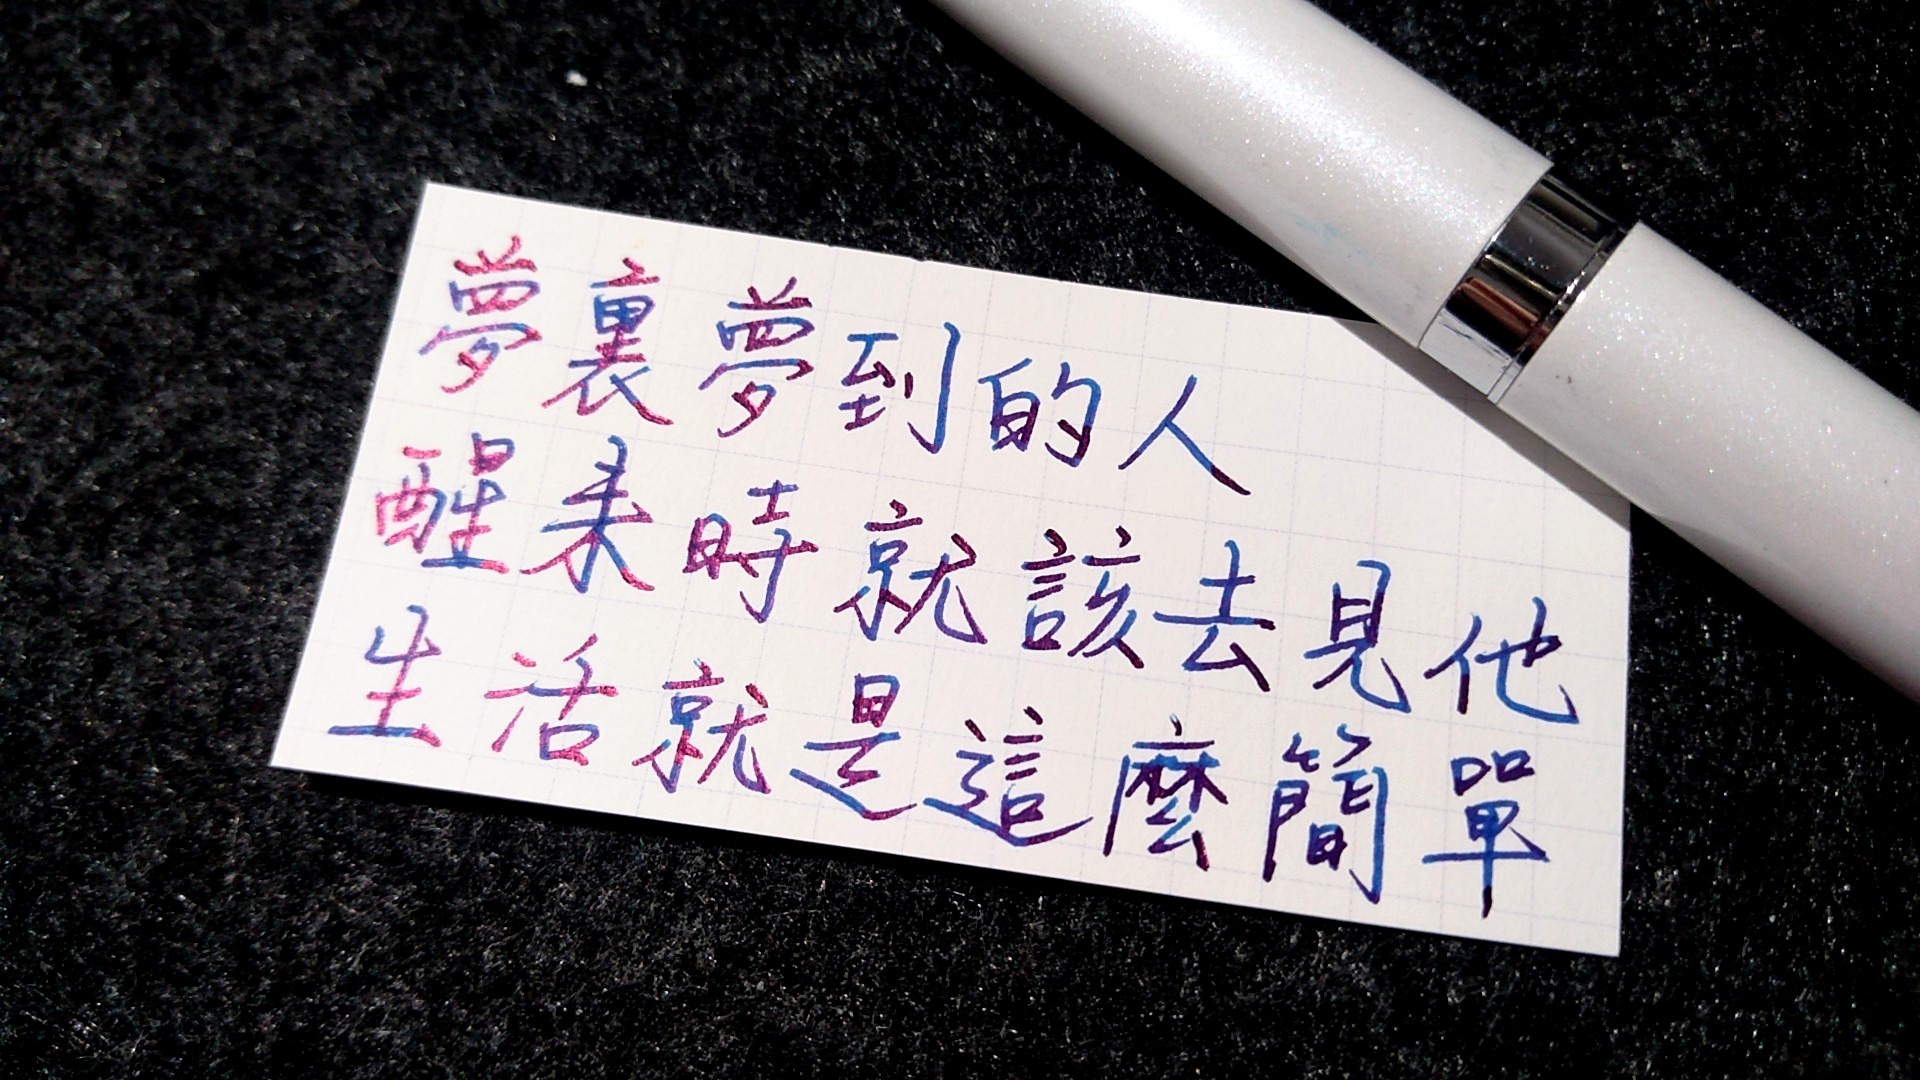 夢裏夢到的人
醒来時就該去見他
生活就是這麼簡單